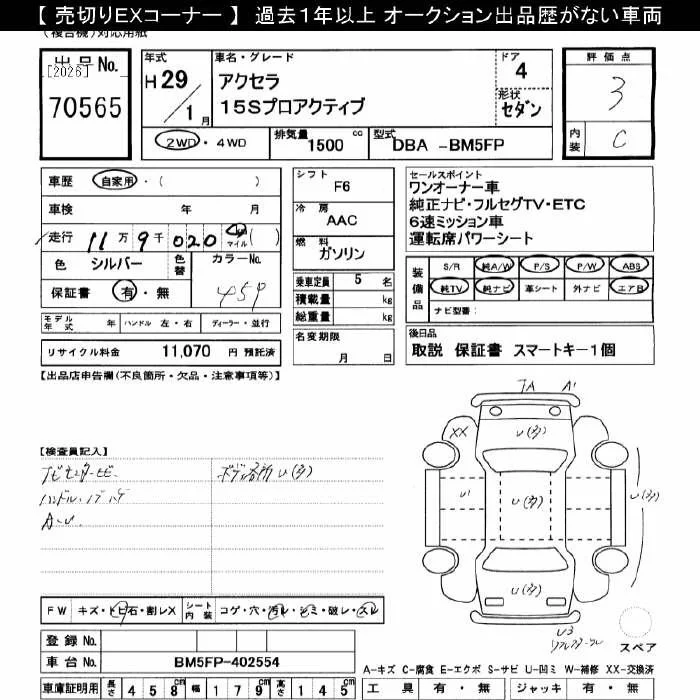 【 売切りEXコーナー 】 過去1年以上 オークション出品歴がない車両
(複合機)対応用紙
出品No.
[2026]
70565
年式
H29/1月
車名・グレード
アクセラ
15Sプロアクティブ
ドア
4
形状
セダン
評価点
3
内装
C
2WD・4WD
排気量 1500 cc
型式 DBA -BM5FP
車歴 自家用・( )
車検 年 月
走行 11万9千020 マイル( )
色 シルバー 色替 カラーNo. 45P
保証書 有・無
シフト F6
冷房 AAC
燃料 ガソリン
乗車定員 5 名
積載量 kg
総重量 kg
名変期限 月 日
セールスポイント
ワンオーナー車
純正ナビ・フルセグTV・ETC
6速ミッション車
運転席パワーシート
装備品 S/R 純A/W P/S P/W ABS
純TV 純ナビ 革シート 外ナビ エアB
ナビ型番:
モデル年式 年 ハンドル 左・右 ディーラー・並行
リサイクル料金 11,070 円 預託済
後日品
取説 保証書 スマートキー1個
【出品店申告欄(不良箇所・欠品・注意事項等)】
【検査員記入】
ハンドル
A-U
U(多)
7A A1
XX U(多)
U1 U(多) U(多)
U(多)
U3
スペア
FW キズ・トビ石・割レX シート内装 コゲ・穴・汚レ・シミ・破レ・スレ
登録No.
車台No. BM5FP-402554
A-キズ C-腐食 E-エクボ S-サビ U-凹ミ W-補修 XX-交換済
車庫証明用 長さ 458cm 幅 179cm 高さ 145cm
工具 有・無 ジャッキ 有・無